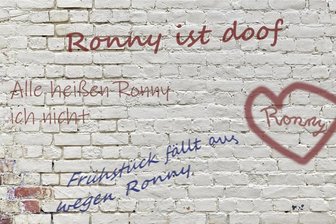 Ronny ist doof
Alle heißen Ronny
ich nicht
Ronny
Frühstück fällt aus
wegen Ronny.